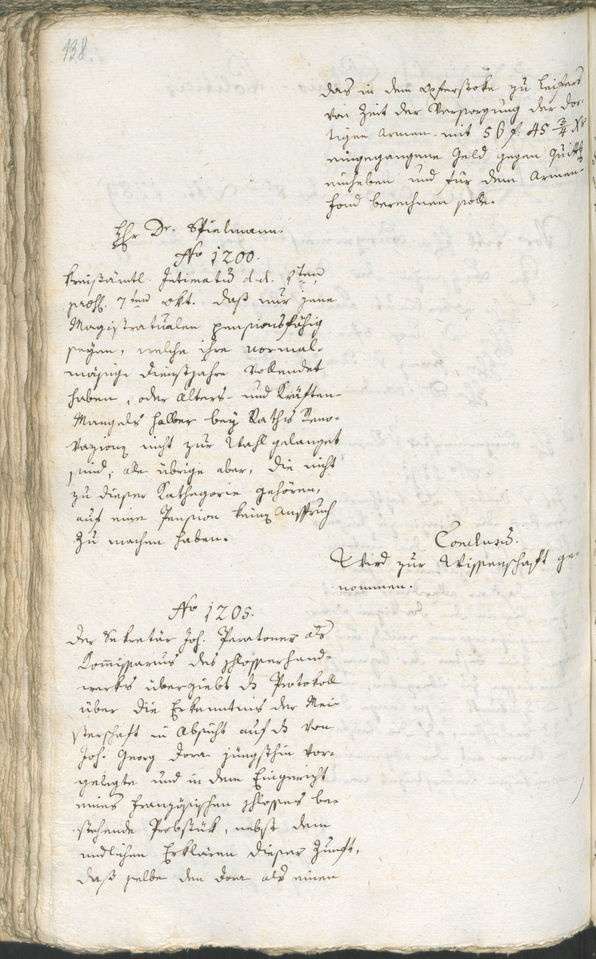 138.
das in dem Opferstoke zu Leifers
von Zeit der Versorgung der dor-
tigen Armen mit 56 f 45 3/4 Xr
eingegangene Geld gegen Quitt.
einheben und für dem Armen-
fond berechnen solle.
Hr Dr. Spielmann.
No 1200.
Kreisämtl. Intimatum d.d. 1ten
praes. 7ten Okt. daß nur jene
Magistratualen pensionsfähig
seyen, welche ihre normal-
mäsige Dienstjahre vollendet
haben, oder Alters- und Kräften-
Mangels halber bey Raths Reno-
vazion nicht zur Wahl gelanget
sind, alle übrige aber, die nicht
zu dieser Kathegorie gehören,
auf eine Pension keinen Anspruch
zu machen haben.
Conclusum.
Wird zur Wissenschaft ge-
nommen.
No 1205.
Der Sekretär Joh. Paratoner als
Kommissarius des Schlosserhand-
werks übergiebt das Protokoll
über die Erkenntnis der Mei-
sterschaft in Absicht auf das von
Joh. Georg Dora jüngsthin vor-
gelegte und in dem Eingericht
eines französischen Schlosses be-
stehende Probstük, nebst dem
endlichen Erklären dieser Zunft,
daß selbe den Dora als einen